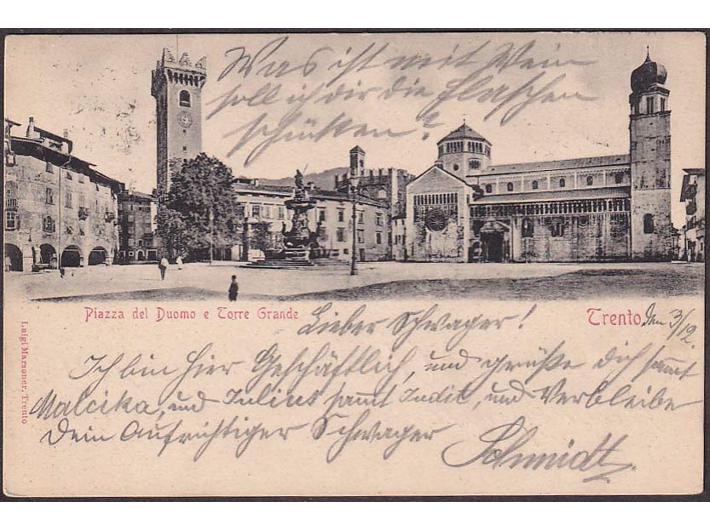 Was ist mit Wein
soll ich dir die Flaschen
schücken?
Piazza del Duomo e Torre Grande
Trento, den 3/12.
Lieber Schwager!
Ich bin hier Geschäftlich, und grüße dich samt
Malcika, und Julius samt Judit, und Verbleibe
Dein Aufrichtiger Schwager Schmidt
Luigi Marzauer, Trento